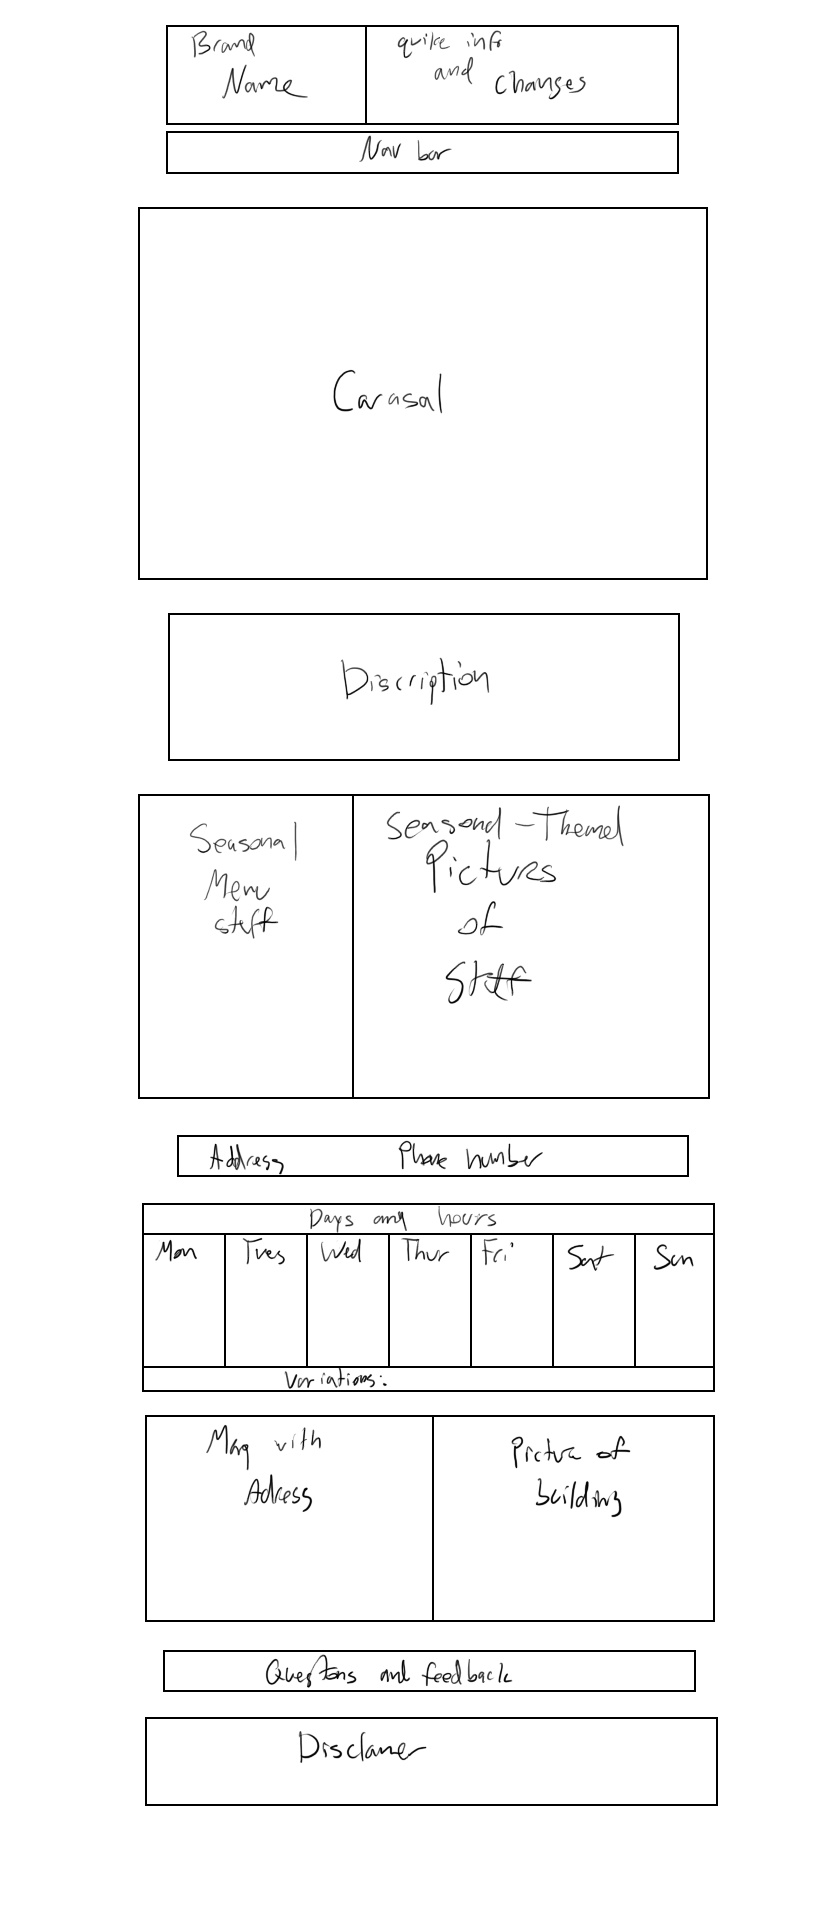 Brand
Name
quike info
and changes
Nav bar
Carasal
Discription
Seasonal
Menu
stuff
Seasonal-Themed
Pictures
of
Stuff
Address Phone number
Days and hours
Mon Tues Wed Thur Fri Sat Sun
Variations:
Map with
Adress
Picture of
building
Questons and feedback
Disclamer